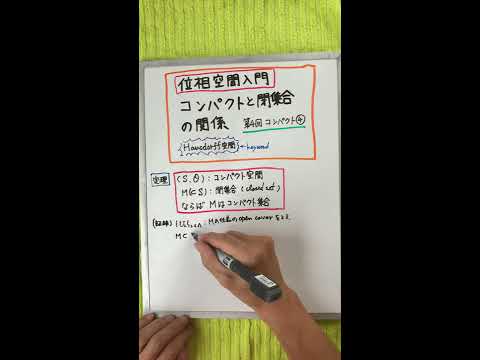 位相空間入門
コンパクトと閉集合
の関係 第4回 コンパクト④
{Hausdorff空間}←keyword
定理 (S,θ):コンパクト空間
M(⊂S):閉集合(closed set)
ならば Mはコンパクト集合
(証明) :Mの任意のopen coverをとる.
M⊂